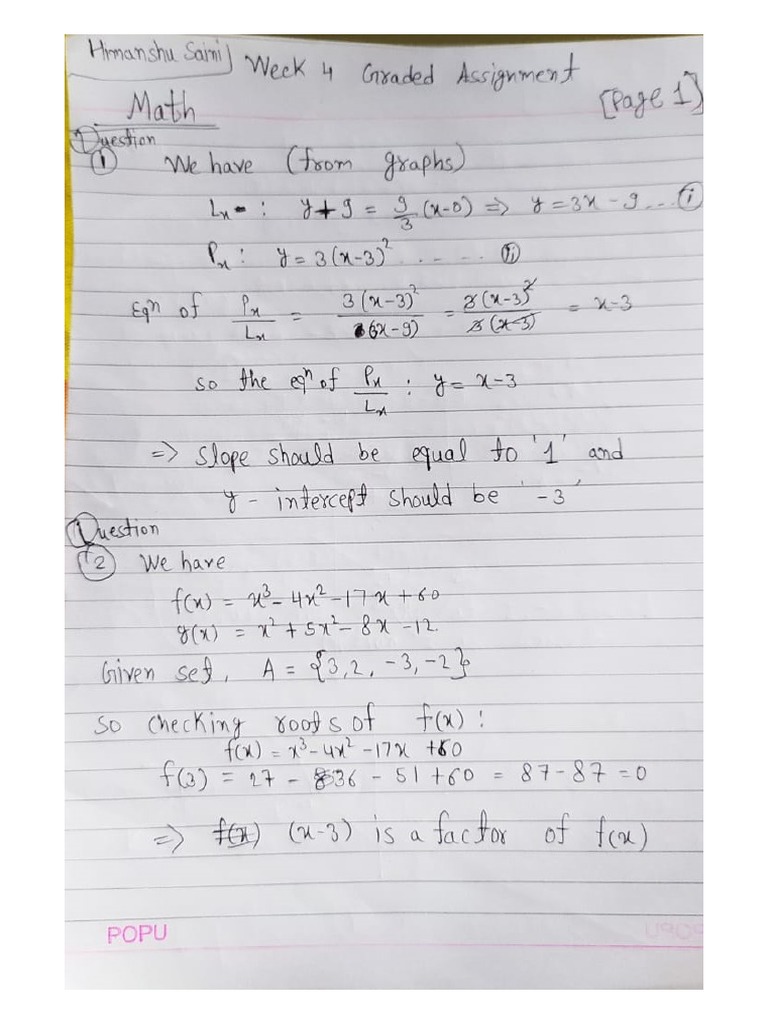 Himanshu Saini Week 4 Graded Assignment
Math [Page 1]
Question
① We have (from graphs)
Lx : y + 9 = 9/3 (x-0) => y = 3x - 9 ... ⓘ
Px : y = 3(x-3)² ........ ⓘⓘ
Eqn of Px/Lx = 3(x-3)²/(3x-9) = 3(x-3)²/3(x-3) = x-3
so the eqn of Px/Lx : y = x-3
=> Slope should be equal to '1' and
y - intercept should be '-3'
Question
② We have
f(x) = x³ - 4x² - 17x + 60
g(x) = x² + 5x² - 8x - 12
Given set, A = {3, 2, -3, -2}
so checking roots of f(x) :
f(x) = x³ - 4x² - 17x + 60
f(3) = 27 - 36 - 51 + 60 = 87 - 87 = 0
=> (x-3) is a factor of f(x)
POPU